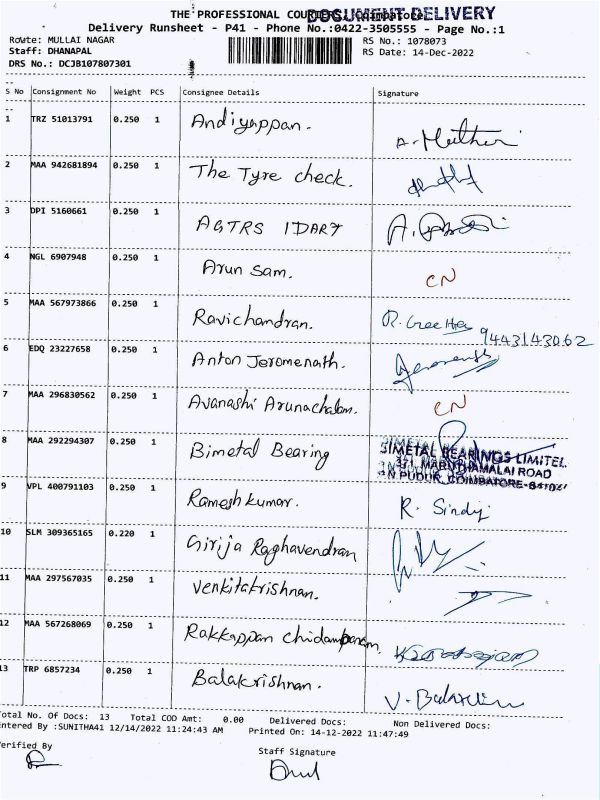 THE PROFESSIONAL COURIERS, Coimbatore DOCUMENT DELIVERY
Delivery Runsheet - P41 - Phone No.:0422-3505555 - Page No.:1
Route: MULLAI NAGAR
RS No.: 1078073
Staff: DHANAPAL
RS Date: 14-Dec-2022
DRS No.: DCJB107807301
S No Consignment No Weight PCS Consignee Details Signature
1 TRZ 51013791 0.250 1 Andiyappan. A. Muthu
2 MAA 942681894 0.250 1 The Tyre check.
3 DPI 5160661 0.250 1 AGTRS IDART A.
4 NGL 6907948 0.250 1 Arun Sam. CN
5 MAA 567973866 0.250 1 Ravichandran. R. Geetha 9443143062
6 EDQ 23227658 0.250 1 Anton Jeromenath.
7 MAA 296830562 0.250 1 Avanashi Arunachalam. CN
8 MAA 292294307 0.250 1 Bimetal Bearing BIMETAL BEARINGS LIMITED.
371, MARUTHAMALAI ROAD
N PUDUR, COIMBATORE-641041
9 VPL 400791103 0.250 1 Rameshkumar. R. Sindij
10 SLM 309365165 0.220 1 Girija Raghavendran
11 MAA 297567035 0.250 1 Venkitakrishnan.
12 MAA 567268069 0.250 1 Rakkappan chidambaram.
13 TRP 6857234 0.250 1 Balakrishnan. V. Balakrishnan
Total No. Of Docs: 13 Total COD Amt: 0.00 Delivered Docs: Non Delivered Docs:
Entered By :SUNITHA41 12/14/2022 11:24:43 AM Printed On: 14-12-2022 11:47:49
Verified By
Staff Signature